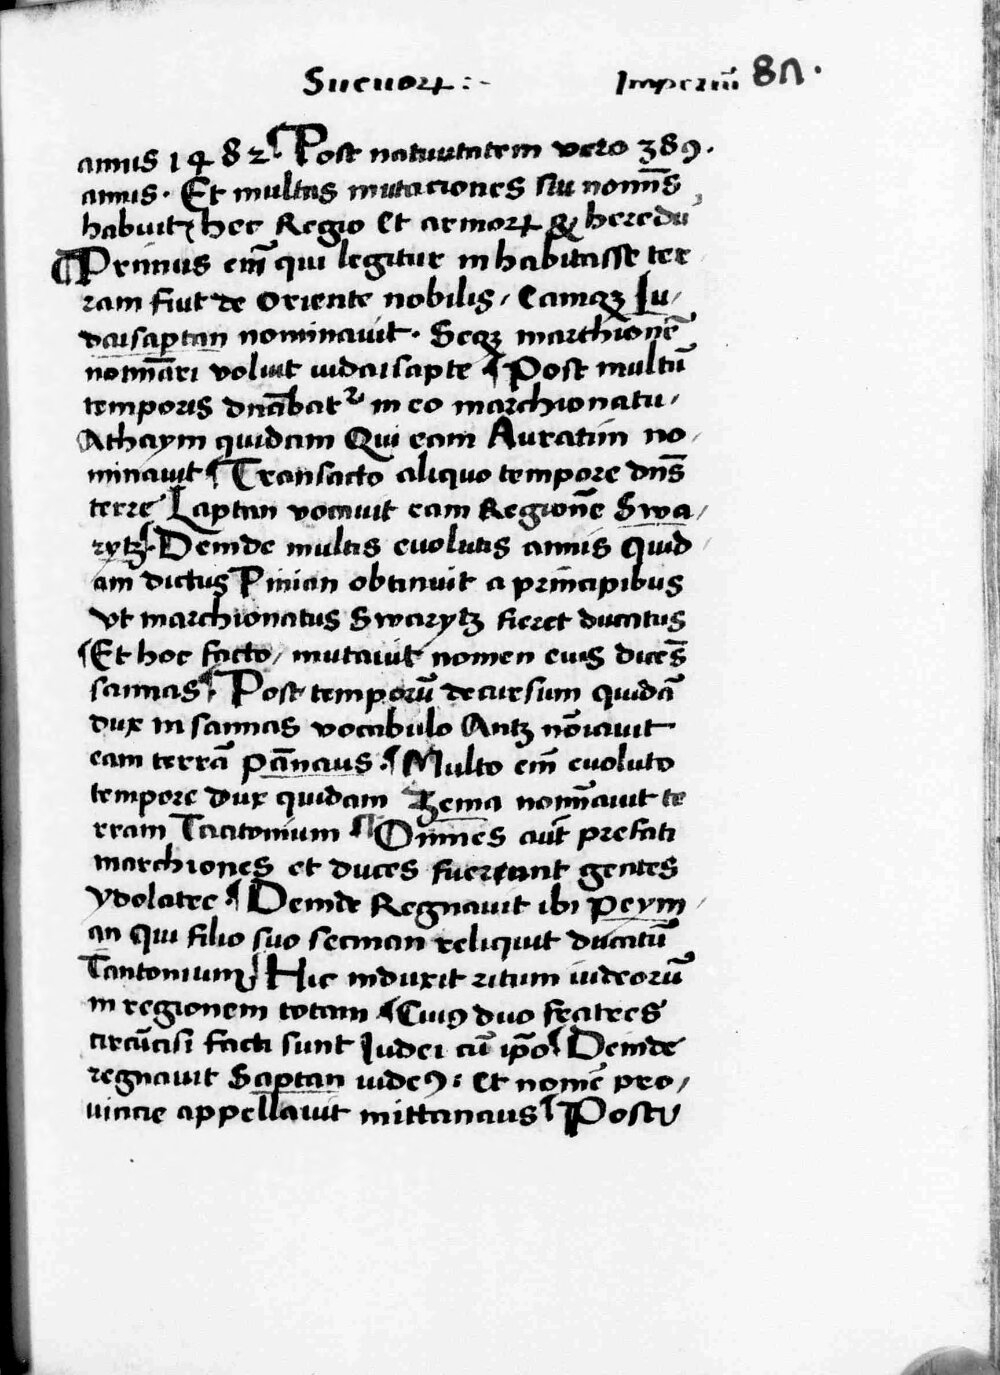 Sueuoꝝ :- Imperiū 87.
annis 1482 ¶ Post natiuitatem vero 389.
annis. Et multas mutaciones sui nomīs
habuit hec Regio Et armoꝝ & heredū
¶ Primus em̄ qui legitur inhabitasse ter
ram fiut de oriente nobilis, Eamqꝫ Iu,
daisaptan nominauit. Seqꝫ marchionē
nomīari voluit iudaisapte ¶ Post multū
temporis dnābat᷑ in eo marchionatu,
Athaym quidam Qui eam Auratim no,
minauit ¶ Transacto aliquo tempore dn̄s
terre Laptan vocauit eam Regionē Swa,
rytz. ¶ Deinde multis euolutis annis Quid
am dictus Pinian obtinuit a principibus
vt marchionatus Swarytz fieret ducatus
¶ Et hoc facto, mutauit nomen eius dicēs
sannas ¶ Post temporū decursum quidā
dux in sannas vocabulo Antz nōiauit
eam terrā pānaus. ¶ Multo em̄ euoluto
tempore dux quidam Zema nomīauit te
rram Tatonium ¶ Omnes aūt prefati
marchiones et duces fuerunt gentes
ydolatre ¶ Deinde Regnauit ibi peym,
an qui filio suo seeman reliquit ducatū
Tantonium ¶ Hic induxit ritum iudeorū
in regionem totam ¶ Cuiꝯ duo fratres
circūcisi facti sunt Iudei cū ip̄o ¶ Deinde
regnauit Saptan iudeꝯ: et nomē pro,
uincie appellauit mittanaus ¶ Post